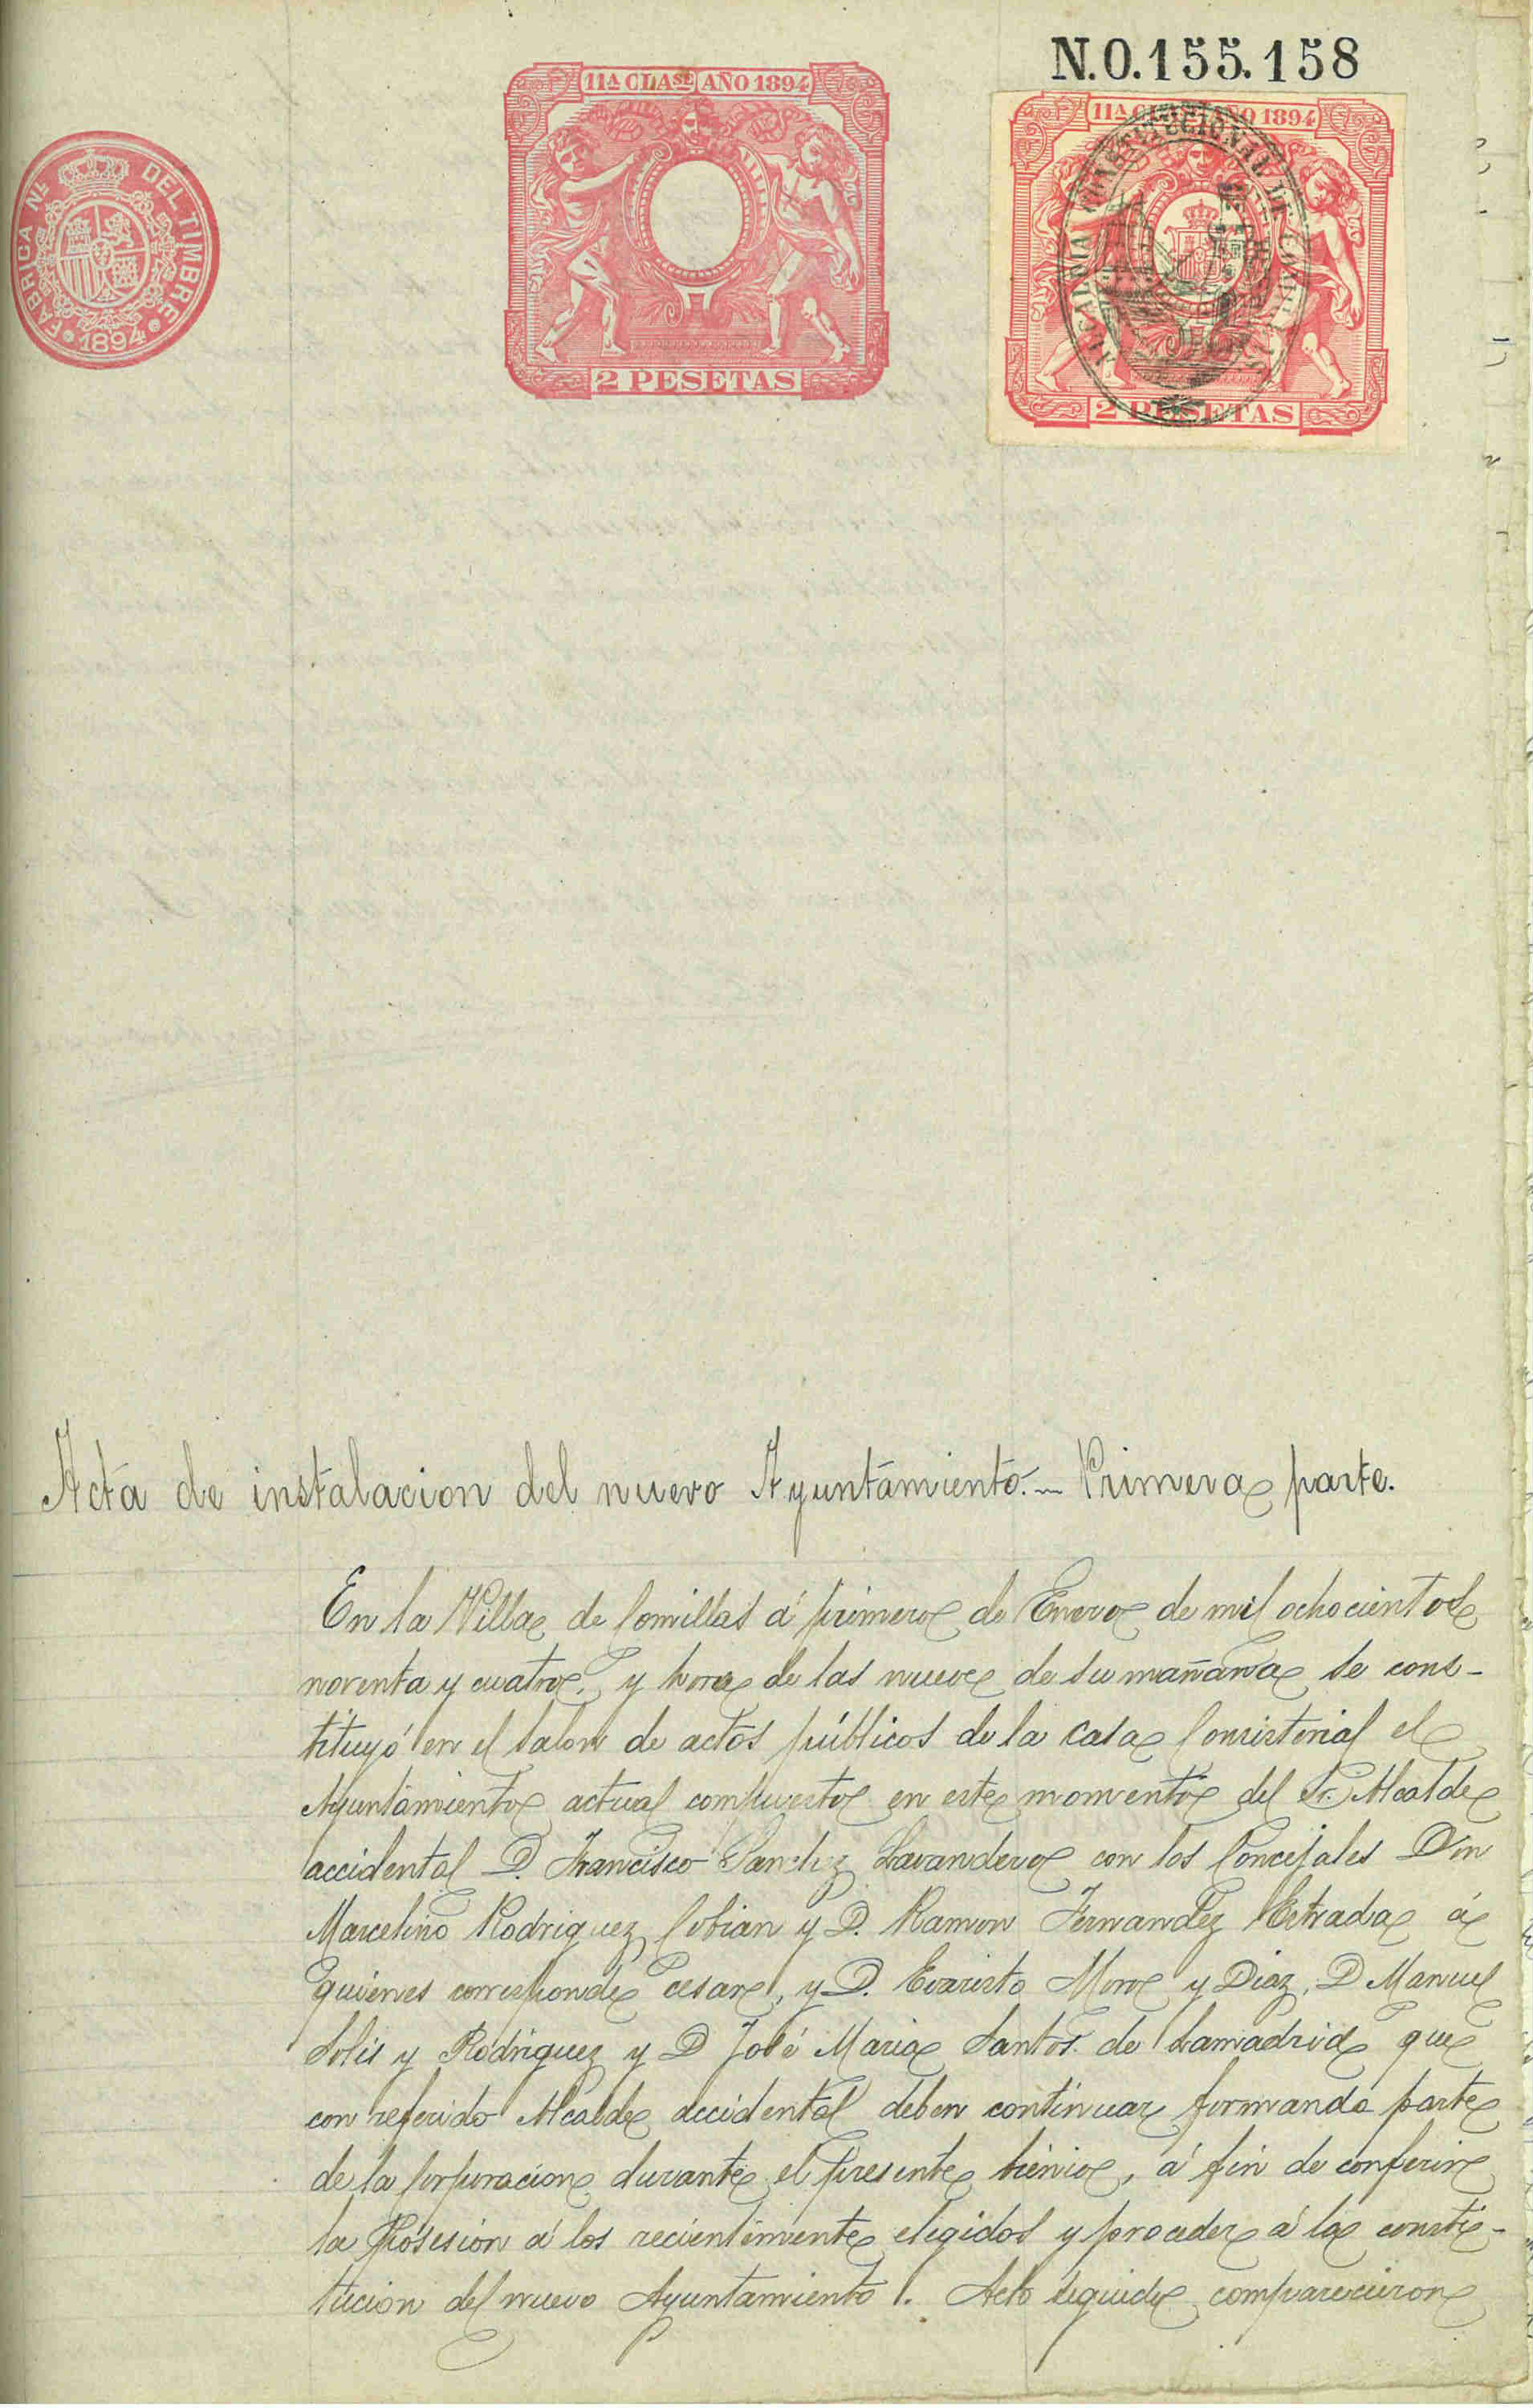 N.0.155.158
11ª CLASE AÑO 1894
11ª CLASE AÑO 1894
ALCALDIA CONSTITUCIONAL DE
FABRICA Nˡ DEL TIMBRE
1894
2 PESETAS
2 PESETAS
Acta de instalacion del nuevo Ayuntamiento.- Primera parte.
En la Villa de Comillas á primero de Enero de mil ochocientos
noventa y cuatro, y hora de las nueve de su mañana se cons-
tituyó en el salon de actos públicos de la casa Consistorial el
Ayuntamiento actual compuesto en este momento del Sr. Alcalde
accidental D. Francisco Sanchez Lavandero con los Concejales Don
Marcelino Rodriguez Cobian y D. Ramon Fernandez Estrada á
quienes corresponde cesar, y D. Evaristo Moro y Diaz, D Manuel
Solis y Rodriguez y D José Maria Santos de Lamadrid que
con referido Alcalde accidental deben continuar formando parte
de la Corporacion durante el presente bienio, á fin de conferir
la posesion á los recientemente elegidos y proceder á la consti-
tucion del nuevo Ayuntamiento. Acto seguido comparecieron